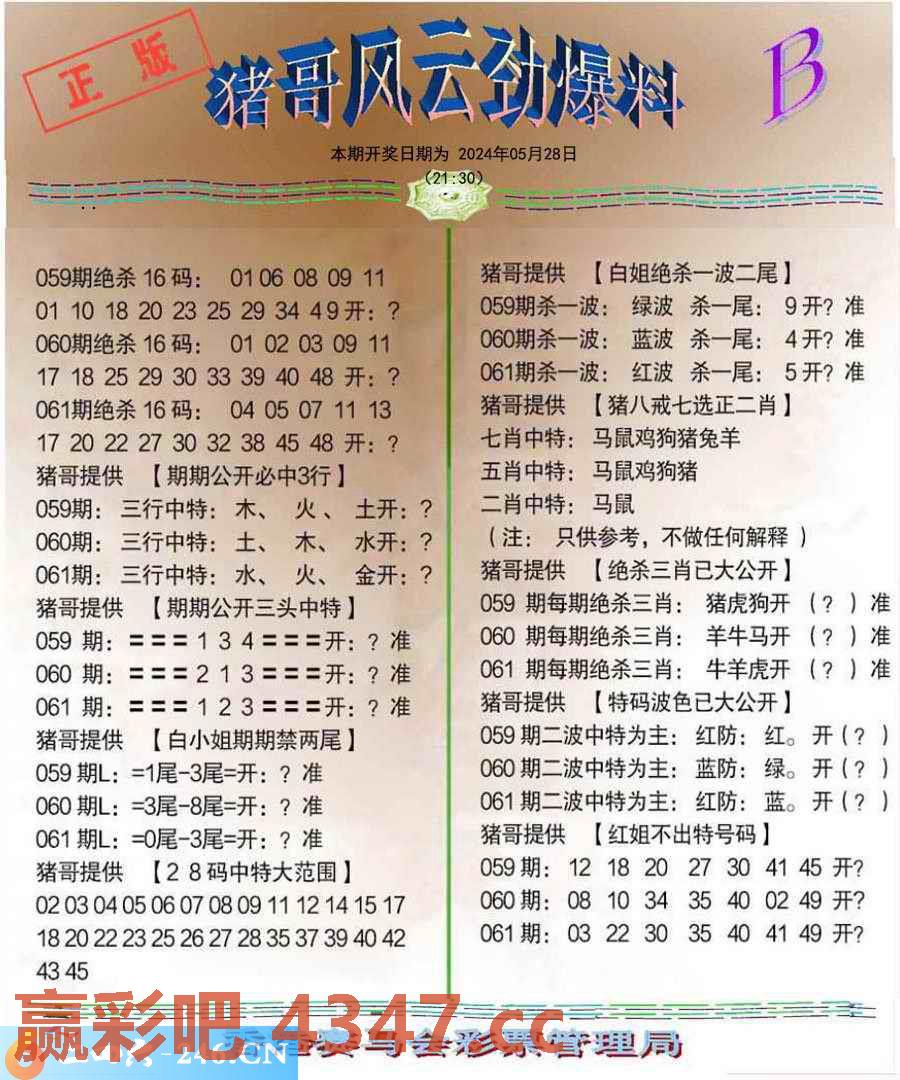 正版
猪哥风云劲爆料
B
本期开奖日期为 2024年05月28日
(21:30)
059期绝杀16码： 01 06 08 09 11
01 10 18 20 23 25 29 34 49开：?
060期绝杀16码： 01 02 03 09 11
17 18 25 29 30 33 39 40 48 开：?
061期绝杀16码： 04 05 07 11 13
17 20 22 27 30 32 38 45 48 开：?
猪哥提供 【期期公开必中3行】
059期： 三行中特： 木、 火、 土开：?
060期： 三行中特： 土、 木、 水开：?
061期： 三行中特： 水、 火、 金开：?
猪哥提供 【期期公开三头中特】
059 期：===134===开：? 准
060 期：===213===开：? 准
061 期：===123===开：? 准
猪哥提供 【白小姐期期禁两尾】
059期L：=1尾-3尾=开：? 准
060期L：=3尾-8尾=开：? 准
061期L：=0尾-3尾=开：? 准
猪哥提供 【28码中特大范围】
02 03 04 05 06 07 08 09 11 12 14 15 17
18 20 22 23 25 26 27 28 35 37 39 40 42
43 45
猪哥提供 【白姐绝杀一波二尾】
059期杀一波： 绿波 杀一尾： 9开? 准
060期杀一波： 蓝波 杀一尾： 4开? 准
061期杀一波： 红波 杀一尾： 5开? 准
猪哥提供 【猪八戒七选正二肖】
七肖中特： 马鼠鸡狗猪兔羊
五肖中特： 马鼠鸡狗猪
二肖中特： 马鼠
（注： 只供参考，不做任何解释）
猪哥提供 【绝杀三肖已大公开】
059 期每期绝杀三肖： 猪虎狗开 （?）准
060 期每期绝杀三肖： 羊牛马开 （?）准
061 期每期绝杀三肖： 牛羊虎开 （?）准
猪哥提供 【特码波色已大公开】
059期二波中特为主： 红防： 红。 开(?)
060期二波中特为主： 蓝防： 绿。 开(?)
061期二波中特为主： 红防： 蓝。 开(?)
猪哥提供 【红姐不出特号码】
059期： 12 18 20 27 30 41 45 开?
060期： 08 10 34 35 40 02 49 开?
061期： 03 22 30 35 40 41 49 开?
赢彩吧 4347.cc
-246.CN
马会彩票管理局